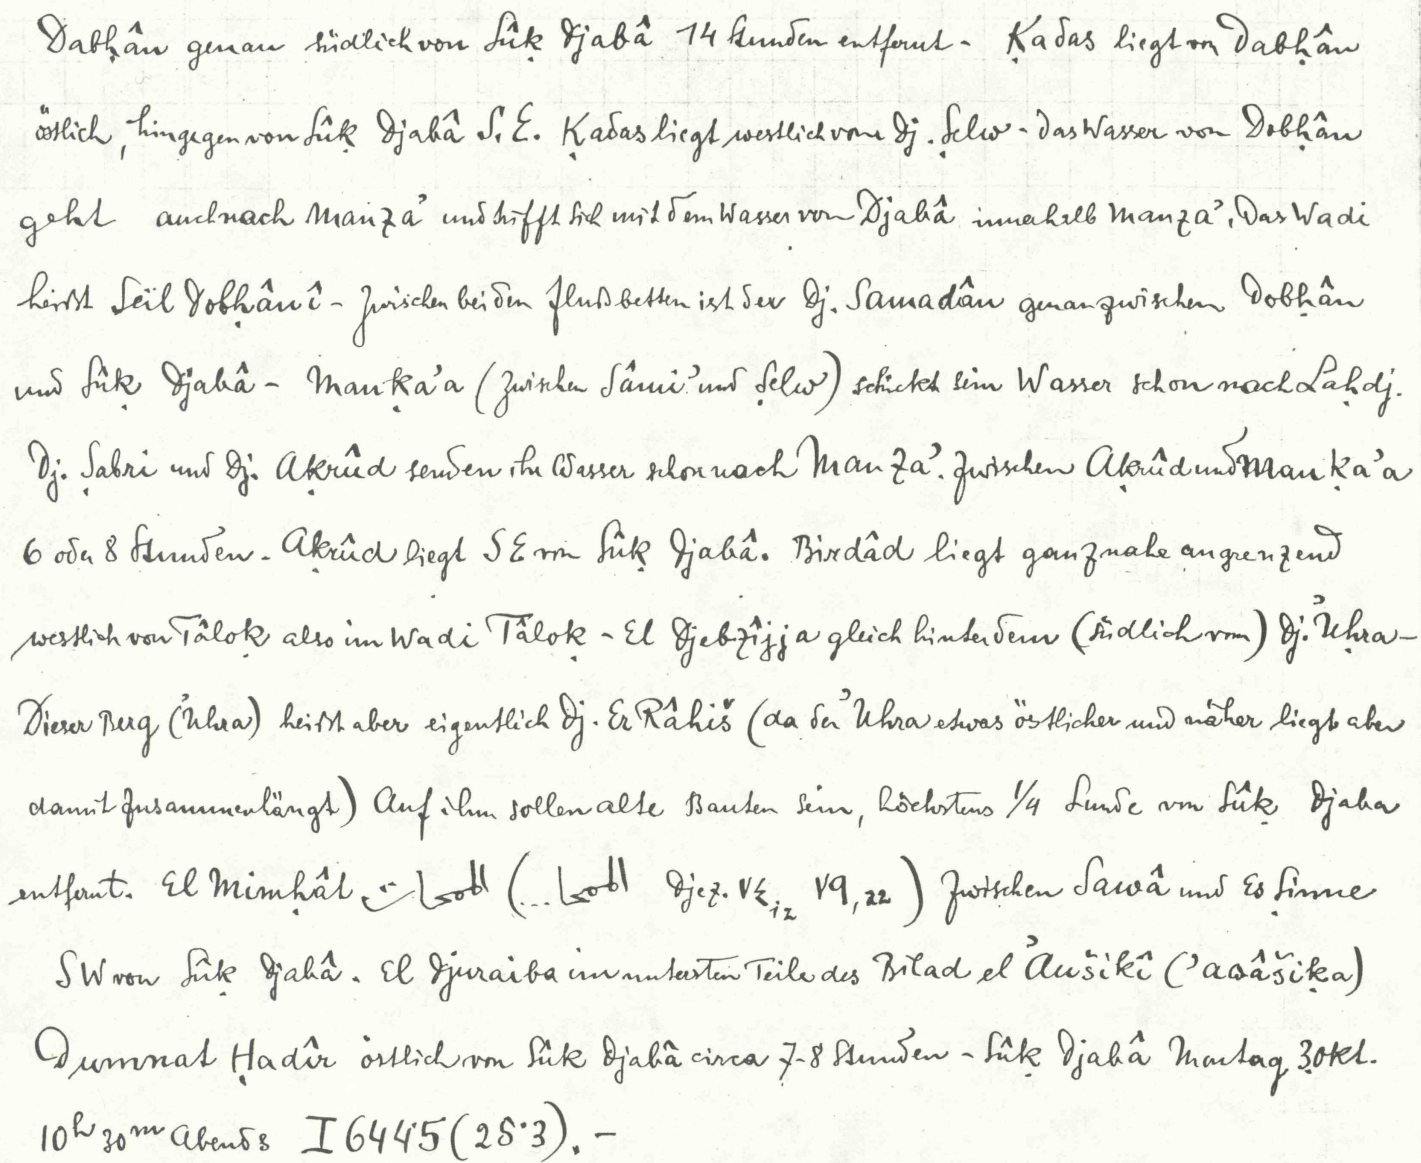 Dabḥân genau südlich von Sûḳ Djabâ 14 Stunden entfernt - Ḳadas liegt von Dabḥân
östlich, hingegen von Sûḳ Djabâ S. E. Ḳadas liegt westlich vom Dj. Ṣelw - das Wasser von Dobḥân
geht auch nach Manẓa’ und trifft sich mit dem Wasser von Djabâ innerhalb Manẓa’. Das Wadi
heisst Seïl Dobḥânî - Zwischen beiden Flussbetten ist der Dj. Samadân genau zwischen Dobḥân
und Sûḳ Djabâ - Manḳa’a (zwischen Sâmi’ und Ṣelw) schickt sein Wasser schon nach Laḥdj.
Dj. Ṣabri und Dj. Aḳrûd senden ihr Wasser schon nach Manẓa’. Zwischen Aḳrûd und Manḳa’a
6 oder 8 Stunden - Aḳrûd liegt SE von Sûḳ Djabâ. Birdâd liegt ganz nahe angrenzend
westlich von Tâloḳ also im Wadi Tâloḳ - El Djebzîjja gleich hinter dem (südlich vom) Dj. ’Uḥra -
Dieser Berg (’Uhra) heisst aber eigentlich Dj. Er Râhiš (da der ’Uhra etwas östlicher und näher liegt aber
damit zusammenhängt) Auf ihm sollen alte Bauten sein, höchstens 1/4 Stunde von Sûḳ Djaba
entfernt. El Mimḥât (... Djez. 79,22) Zwischen Sawâ und Es Ṣinne
SW von Sûḳ Djabâ. El Djuraiba im untersten Teile des Bilad el ’Aušikî (’awâšiḳa)
Dumnat Ḥadîr östlich von Sûḳ Djabâ circa 7-8 Stunden - Sûḳ Djabâ Montag 3. Okt.
10h 30m Abends I 6445 (25·3). -